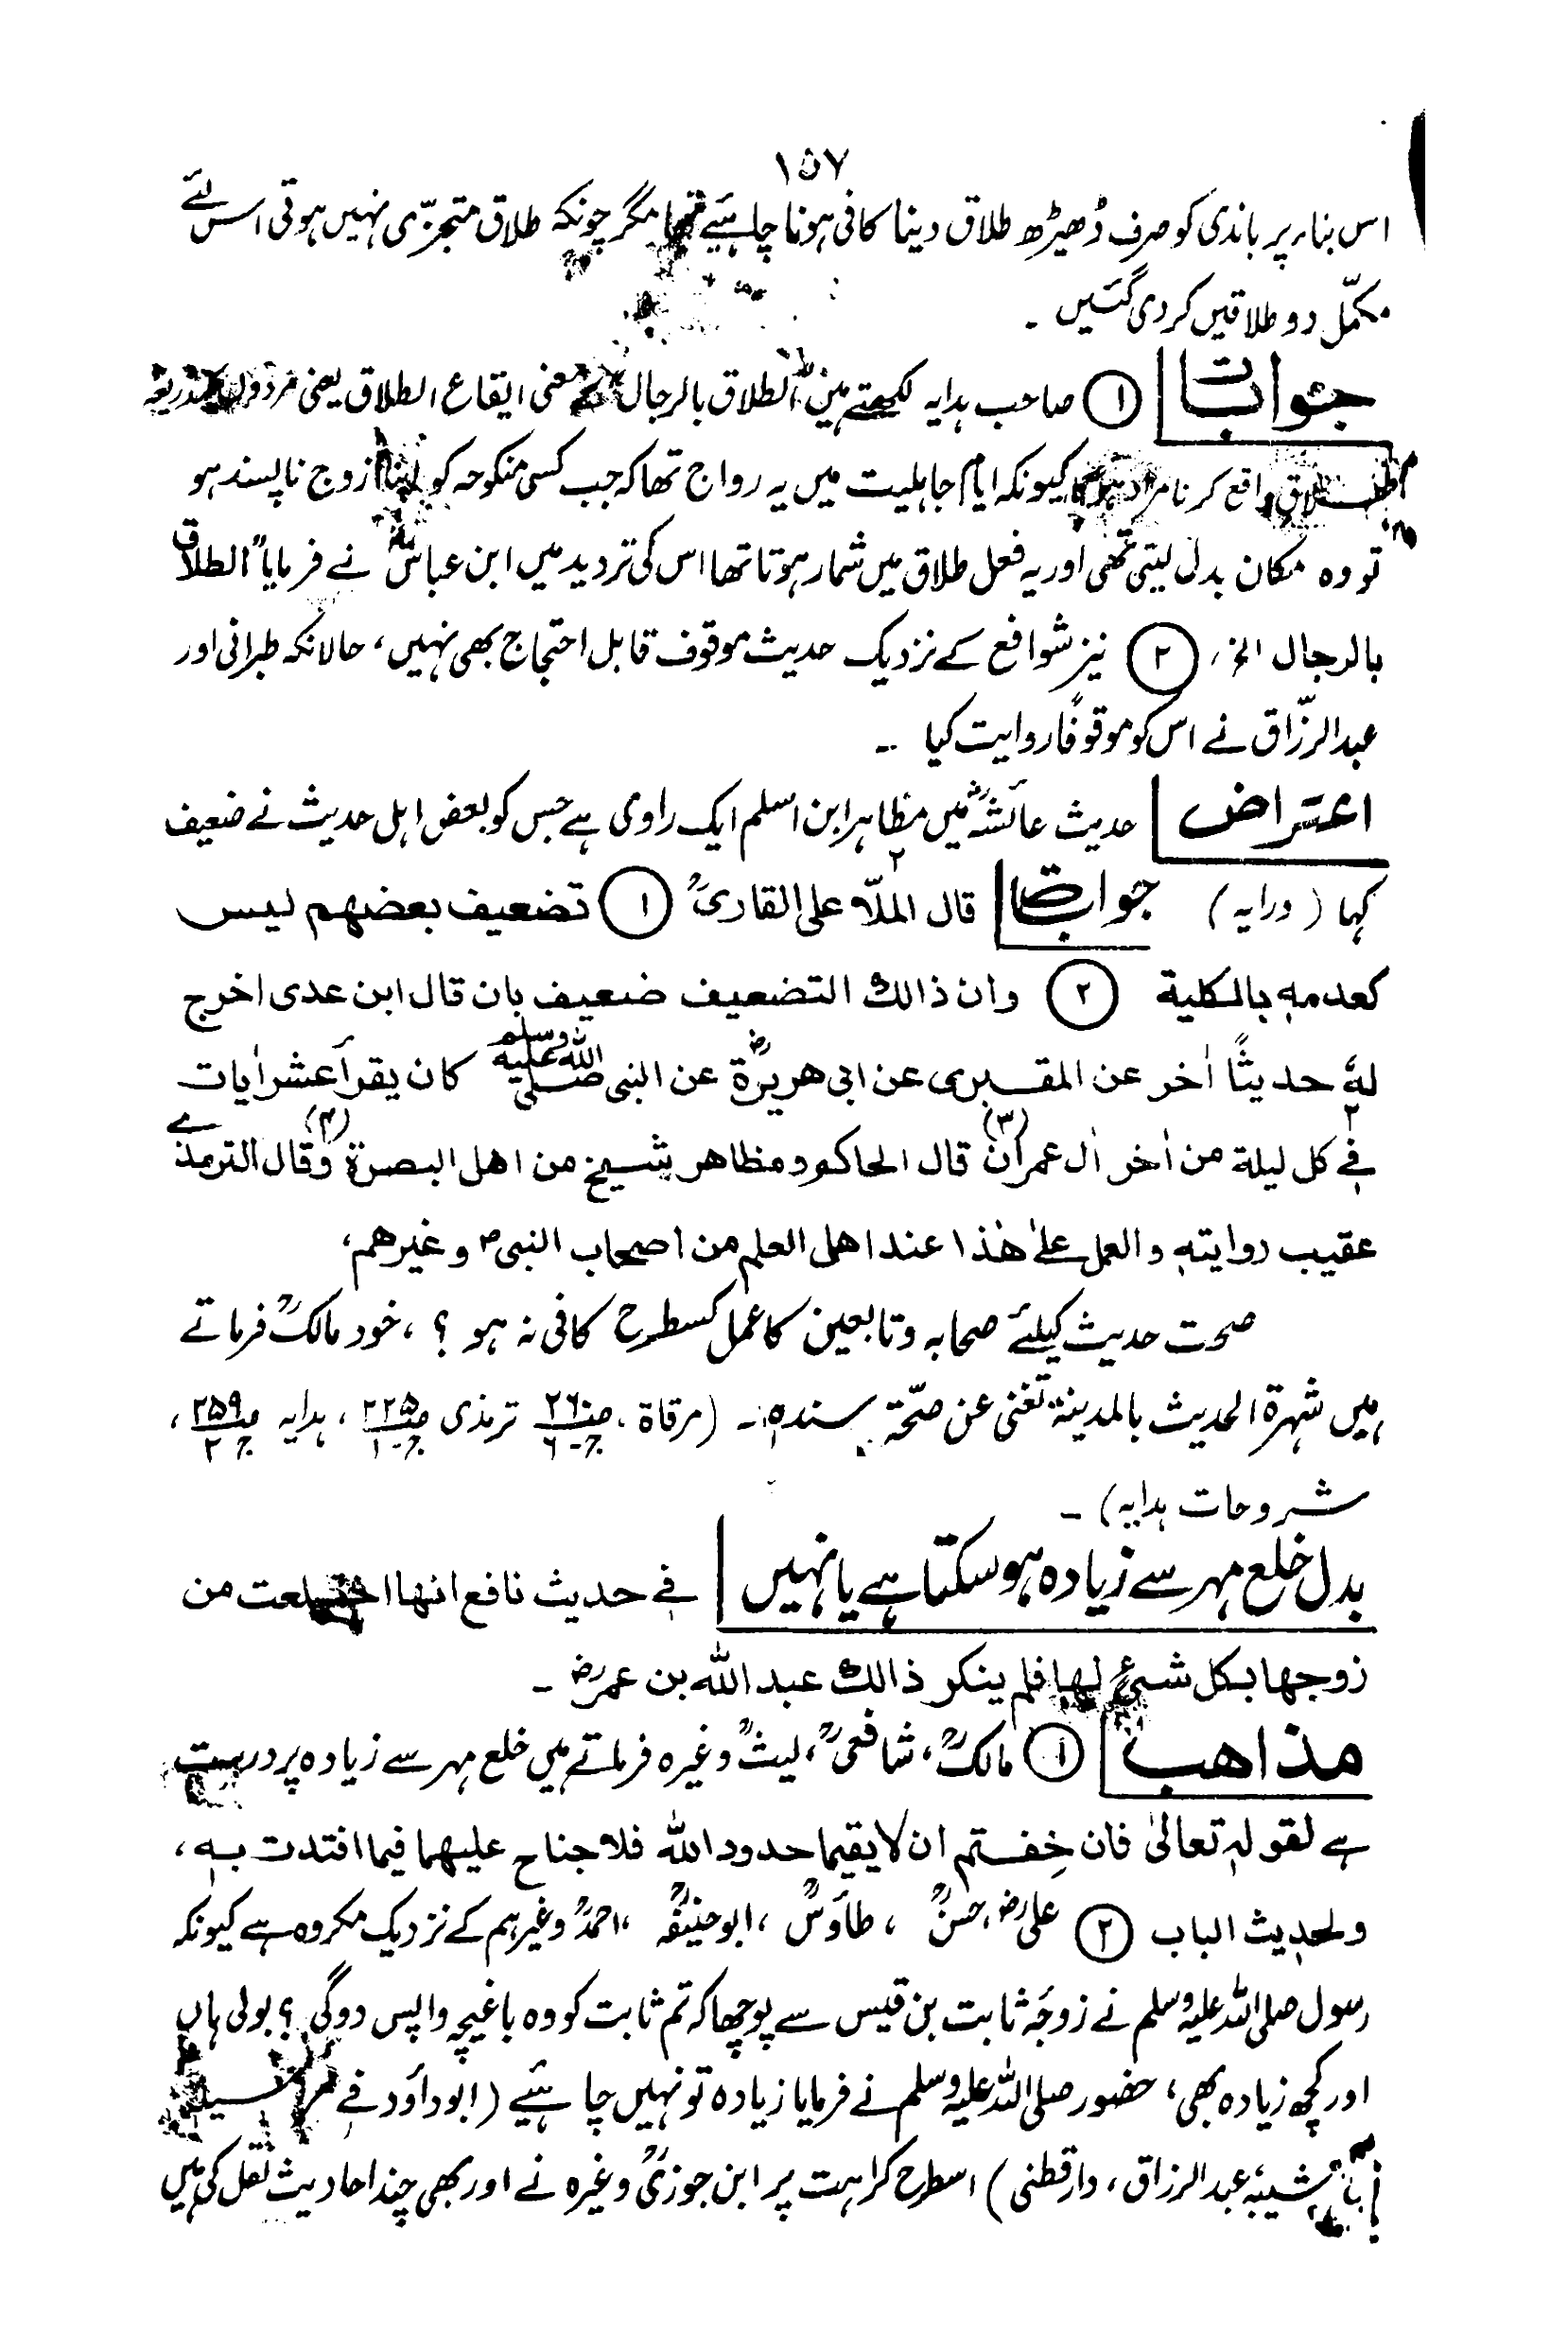 ۱۵۷
اس بناء پر باندی کو صرف ڈھیڑھ طلاق دینا کافی ہونا چاہئیے تھا مگر چونکہ طلاق متجزّی نہیں ہوتی اس لئے
مکمّل دو طلاقیں کر دی گئیں ۔
جوابات ① صاحب ہدایہ لکھتے ہیں الطلاق بالرجال کے معنی ایقاع الطلاق یعنی مردوں کے ذریعہ
طلاق واقع کرنا مراد کیونکہ ایام جاہلیت میں یہ رواج تھا کہ جب کسی منکوحہ کو اپنا زوج ناپسند ہو
تو وہ مکان بدل لیتی تھی اور یہ فعل طلاق میں شمار ہوتا تھا اس کی تردید میں ابن عباسؓ نے فرمایا "الطلاق
بالرجال الخ، ② نیز شوافع کے نزدیک حدیث موقوف قابل احتجاج بھی نہیں، حالانکہ طبرانی اور
عبدالرزّاق نے اس کو موقوفًا روایت کیا ۔
اعتراض حدیث عائشہؓ میں مظاہر ابن اسلم ایک راوی ہے جس کو بعض اہل حدیث نے ضعیف
کہا (درایہ) جوابات قال الملّا علی القاریؒ ① تضعیف بعضهم لیس
کعدمہٖ بالکلیة ② وان ذالك التضعیف ضعیف بان قال ابن عدی اخرج
لہٗ حدیثًا اٰخر عن المقبری عن ابی هریرةؓ عن النبی صلی اللہ علیہ وسلم کان یقرأ عشر اٰیات
فی کل لیلة من اٰخر اٰل عمران (۳) قال الحاکم و مظاهر شیخ من اهل البصرة (۴) وقال الترمذی
عقیب روایتہٖ والعمل علیٰ هٰذا عند اهل العلم من اصحاب النبیؐ وغیرهم،
صحت حدیث کیلئے صحابہ و تابعین کا عمل کسطرح کافی نہ ہو ؟، خود مالکؒ فرماتے
ہیں شہرة الحدیث بالمدینة تغنی عن صحّة سندہ ۔ (مرقاة ص۲۶ ج۶ ترمذی ص۲۲۵ ج۱، ہدایہ ص۳۵۹ ج۲،
شروحات ہدایہ) ۔
بدل خلع مہر سے زیادہ ہو سکتا ہے یا نہیں فی حدیث نافع انها اختلعت من
زوجها بکل شیءٍ لها فلم ینکر ذالك عبد اللّٰہ بن عمرؓ ۔
مذاهب ① مالکؒ، شافعیؒ، لیثؒ وغیرہ فرماتے ہیں خلع مہر سے زیادہ پر درست
ہے لقولہٖ تعالیٰ فان خِفتم ان لا یقیما حدود اللّٰہ فلا جناح علیهما فیما افتدت بہٖ،
ولحدیث الباب ② علیؓ، حسنؒ، طاؤسؒ، ابوحنیفہؒ، احمدؒ وغیرہم کے نزدیک مکروہ ہے کیونکہ
رسول صلی اللہ علیہ وسلم نے زوجۂ ثابت بن قیس سے پوچھا کہ تم ثابت کو وہ باغیچہ واپس دوگی ؟ بولی ہاں
اور کچھ زیادہ بھی، حضور صلی اللہ علیہ وسلم نے فرمایا زیادہ تو نہیں چاہئیے (ابوداؤد فی مراسیلہ
شیبہ، عبدالرزاق، دارقطنی) اسطرح کراہت پر ابن جوزیؒ وغیرہ نے اور بھی چند احادیث نقل کی ہیں